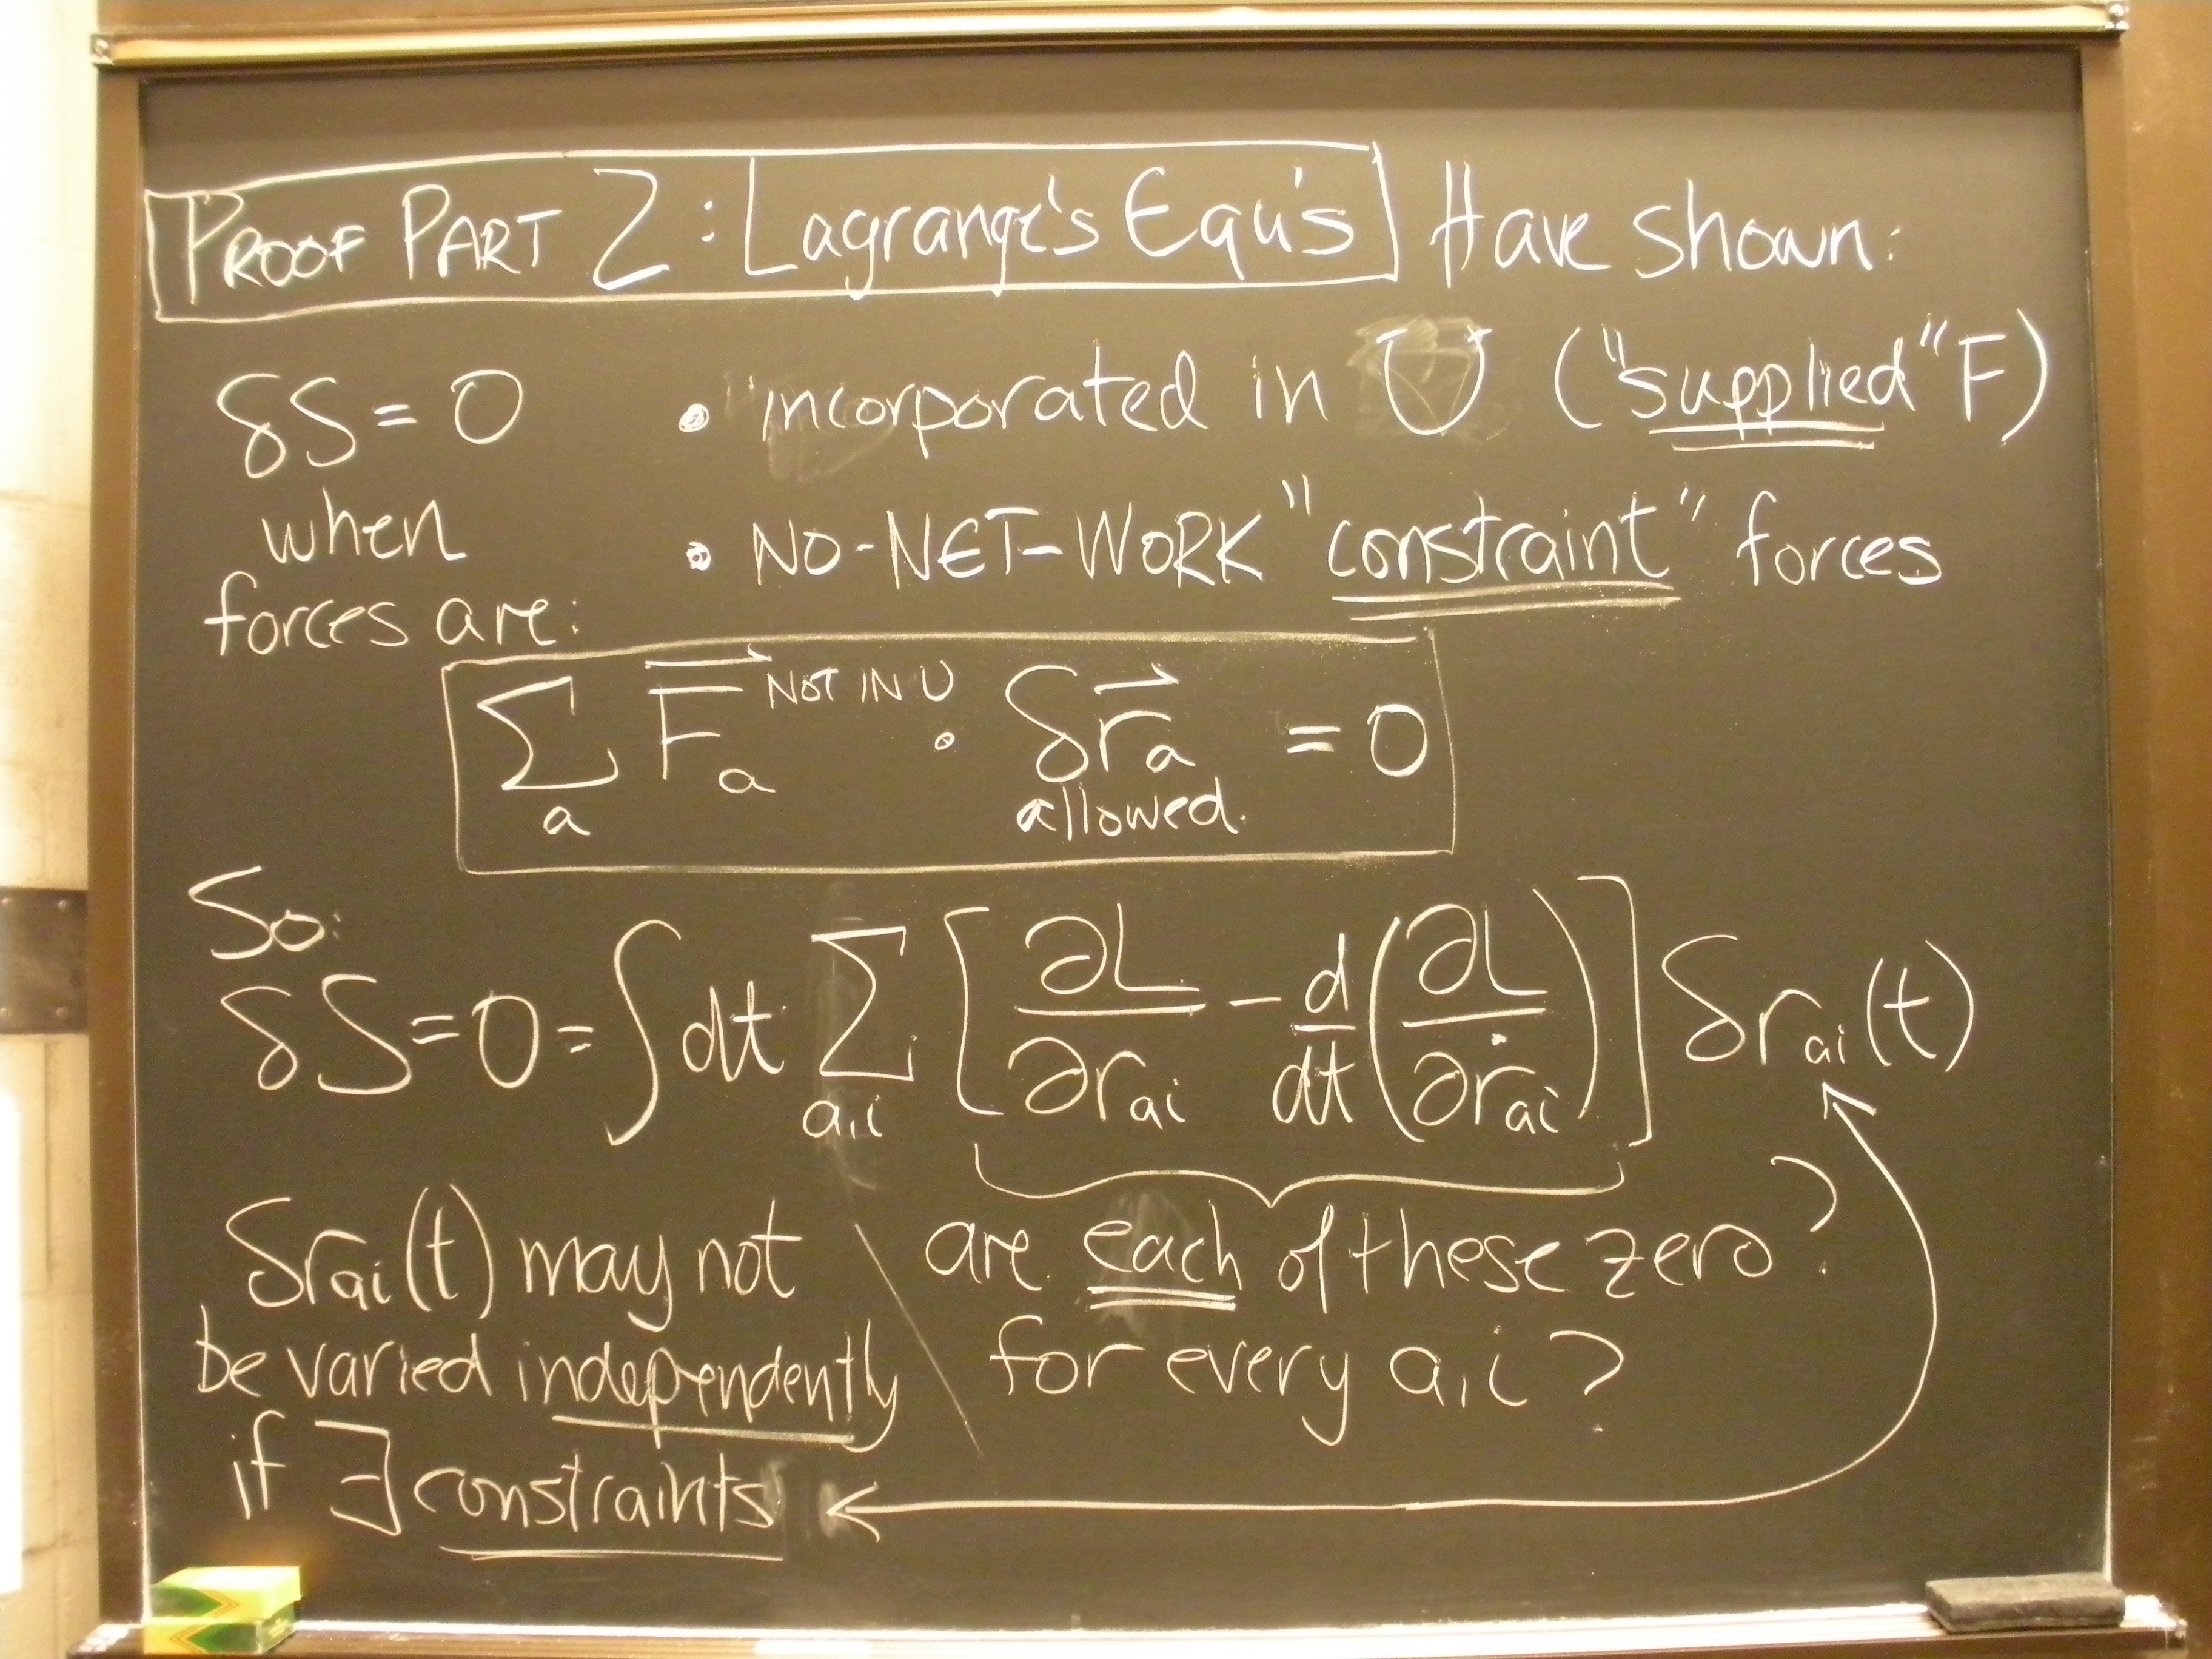 PROOF PART 2: Lagrange's Equ's Have shown:
δS = 0 • incorporated in U ("supplied" F)
when • NO-NET-WORK "constraint" forces
forces are:
∑ₐ F⃗ₐ^NOT IN U · δr⃗ₐ = 0
allowed.
So:
δS = 0 = ∫dt ∑_{a,i} [∂L/∂r_{ai} − d/dt(∂L/∂ṙ_{ai})] δr_{ai}(t)
δr_{ai}(t) may not
be varied independently
if ∃ constraints
are each of these zero?
for every a,i?